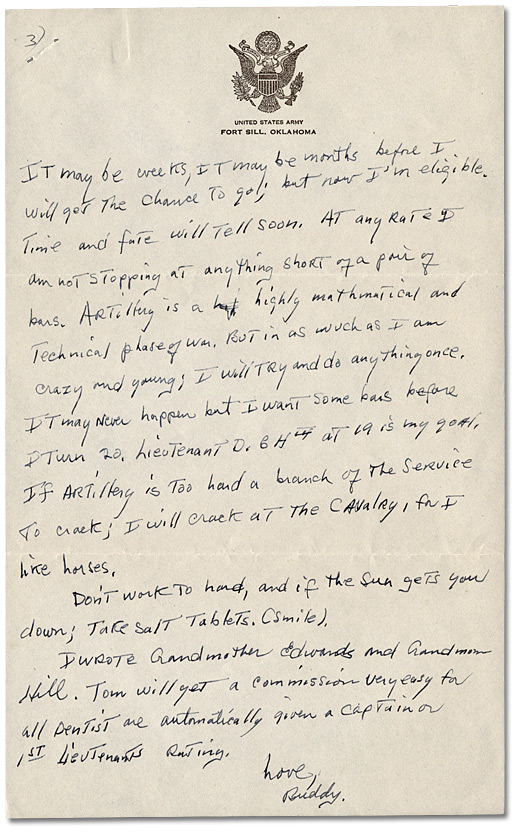 3)
UNITED STATES ARMY
FORT SILL, OKLAHOMA
IT may be weeks, IT may be months before I
will get The Chance To go; but now I'm eligible.
Time and fate will Tell soon. AT any Rate I
am not STopping at anything short of a pair of
bars. ARTillery is a highly mathmatical and
Technical phase of war. But in as much as I am
crazy and young; I will TRy and do anything once.
IT may Never happen but I want some bars before
I Turn 20. LieuTenant D. at 19 is my goal.
If ARTillery is Too hard a branch of The Service
To crack; I will crack at The CAvalry, for I
like horses.
Don't work To hard, and if the Sun gets you
down; Take SalT TableTs. (smile).
I WROTE Grandmother Edwards and Grandmom
Hill. Tom will get a commission very easy for
all DenTist are automatically given a captain or
1ST LieuTenants Rating.
Love,
Buddy.